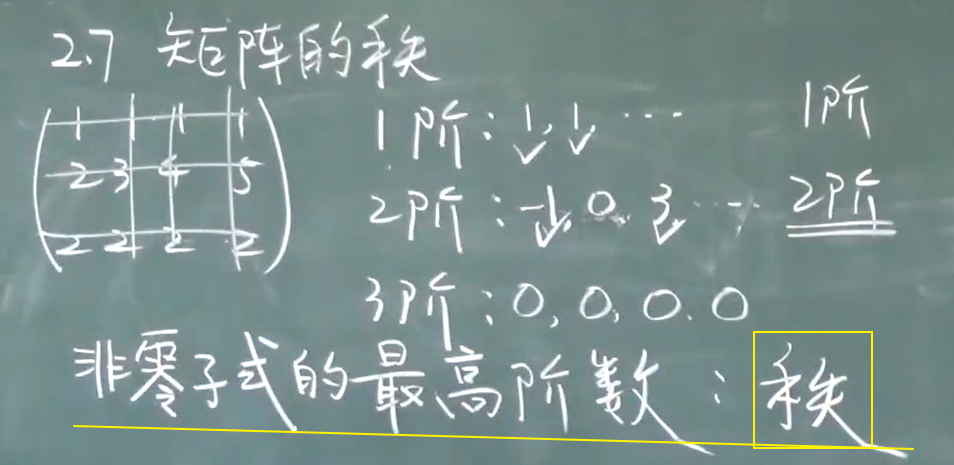 2.7 矩阵的秩
1 1 1 1
2 3 4 5
2 2 2 2
1阶: 1, 1, … 1阶
2阶: -1, 0, 3, … 2阶
3阶: 0, 0, 0. 0
非零子式的最高阶数: 秩